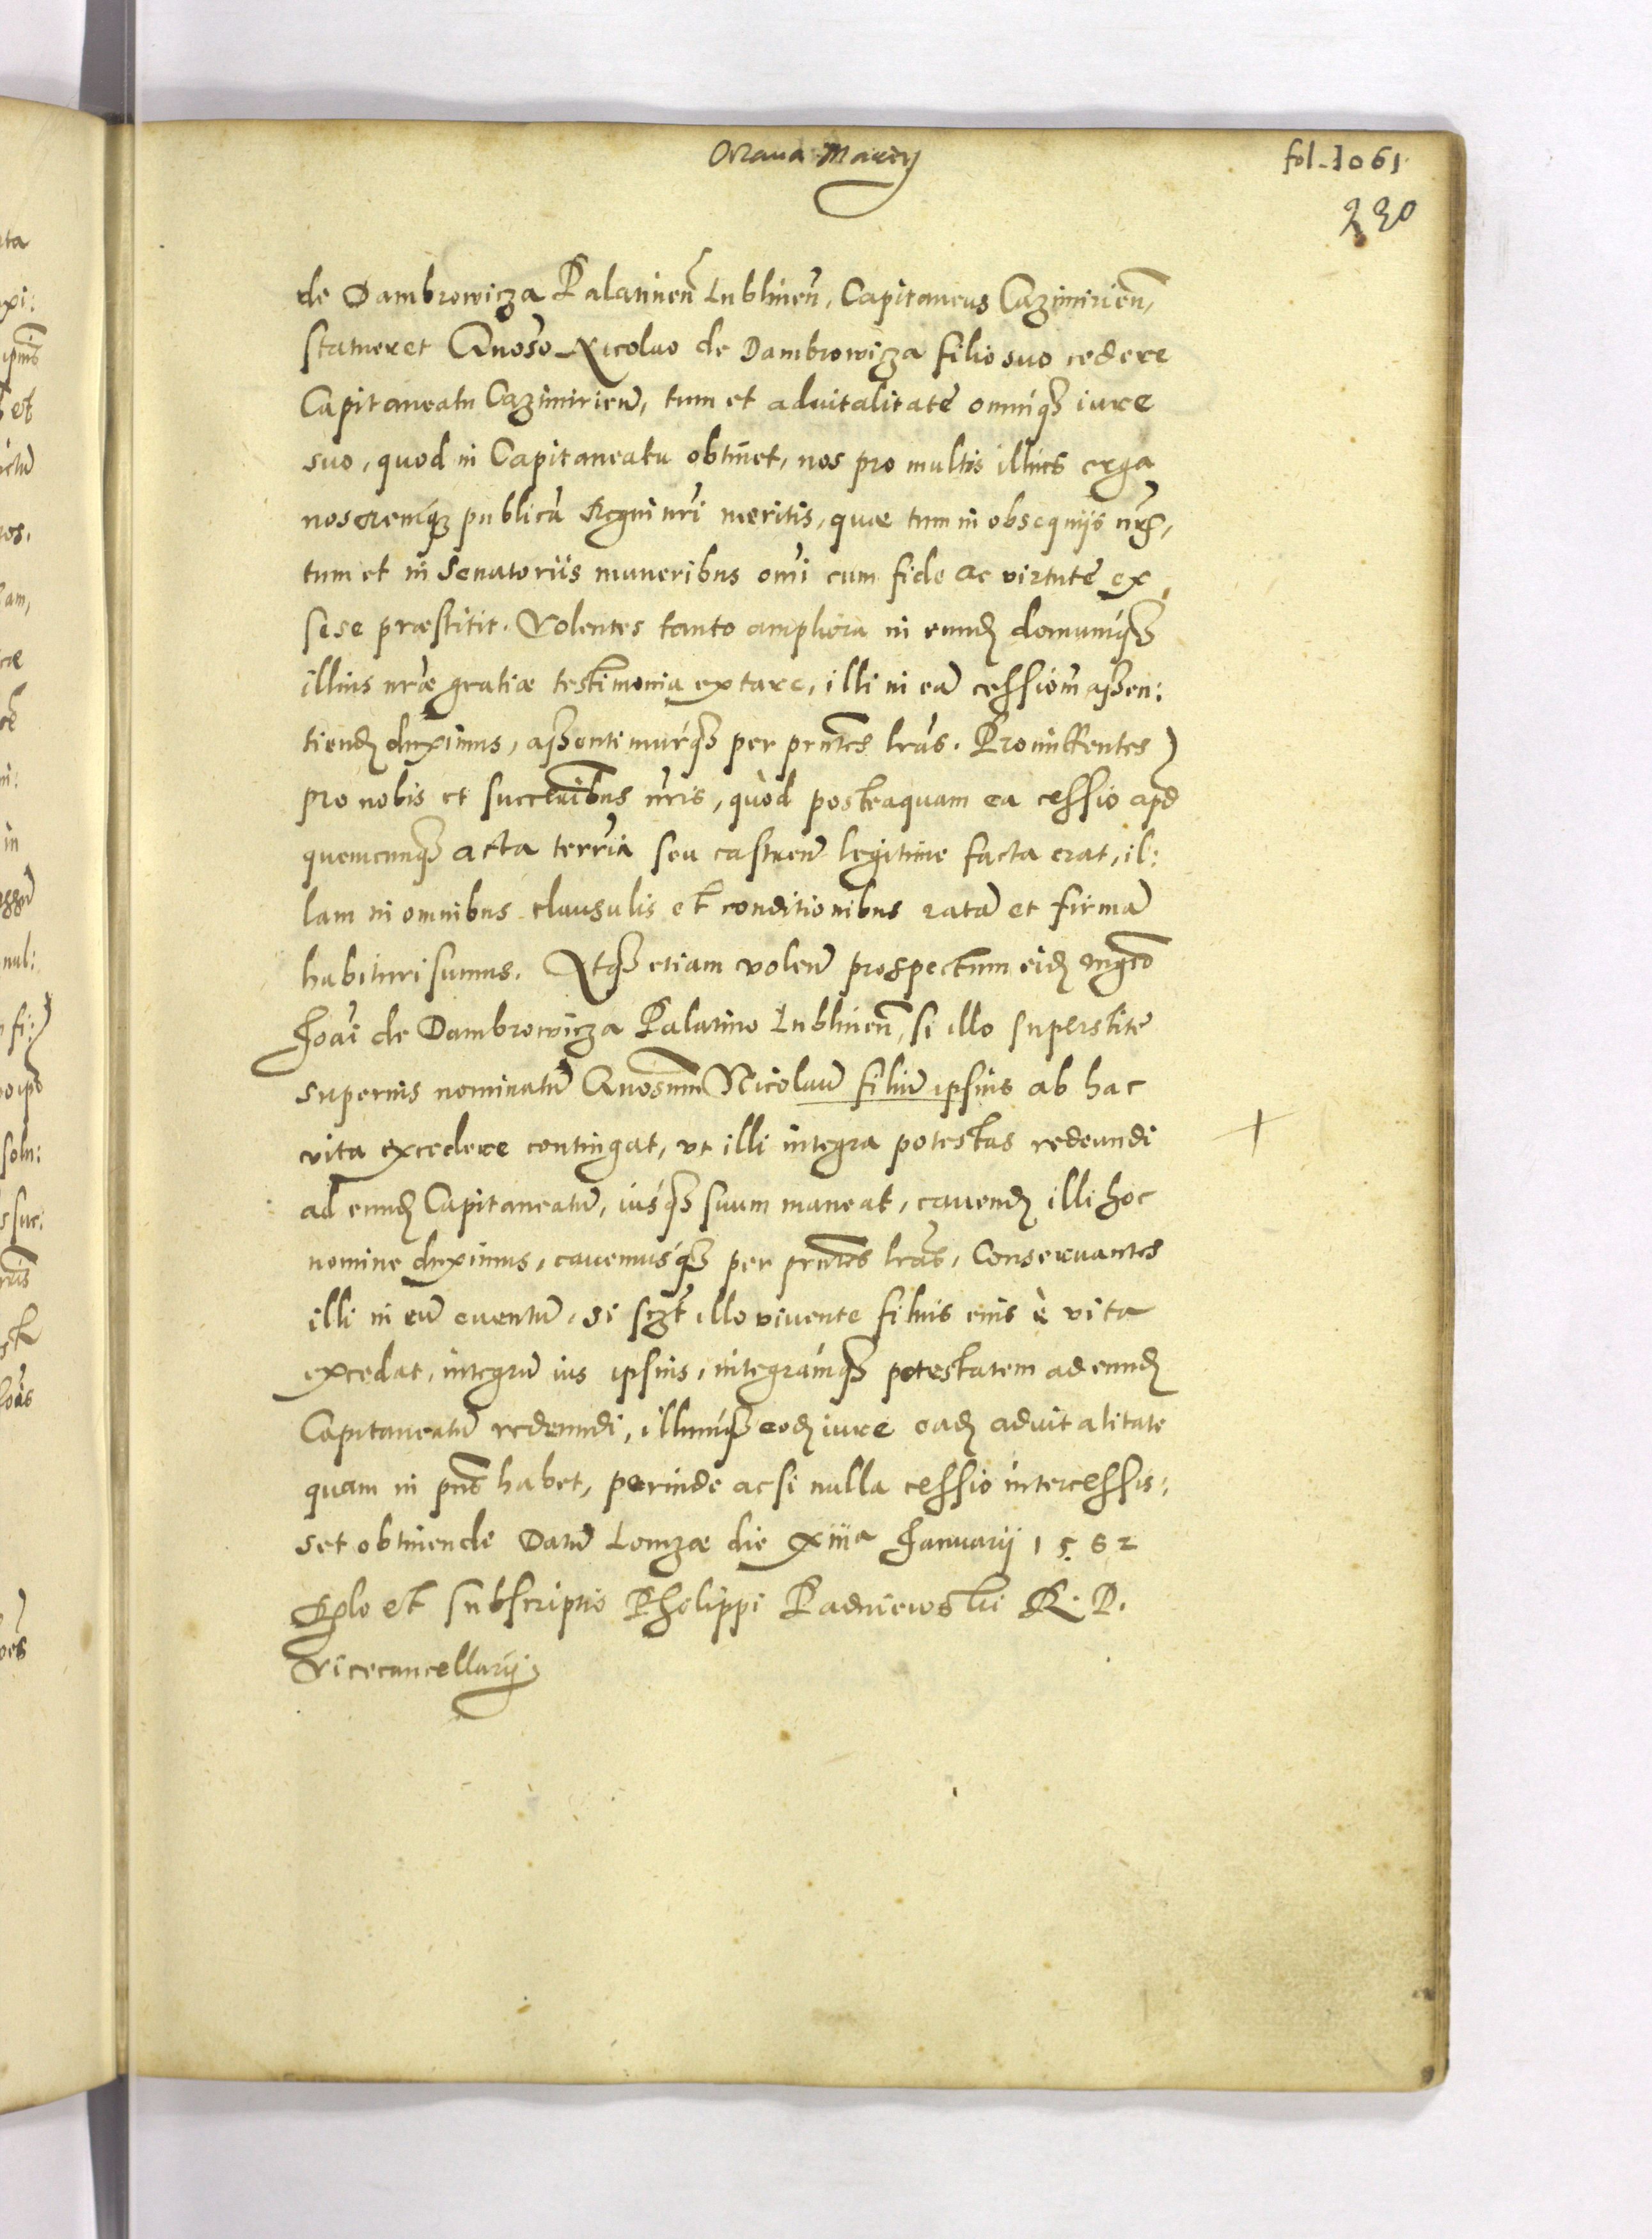 Octaua Marcij
fol. 1061
230
de Dambrowicza Palatinen̄ Lublinen̄, Capitaneus Cazimirien̄,
statueret Gnoso Nicolao de Dambrowicza filio suo cedere
Capitaneatu Cazimirien̄, tum et aduitalitate omniq₃ iure
suo, quod in Capitaneatu obtinet, nos pro multis illius erga
nos remq₃ publicā Regni nr̄i meritis, quae tum in obsequijs nr̄is,
tum et in Senatoriis muneribus om̄i cum fide ac virtute ex
sese præstitit. Volentes tanto ampliora in eund domumq₃
illius nr̄æ gratiæ testimonia extare, illi in eā cessionē assen:
tiend duximus, assentimurq₃ per pr̄ntes lr̄as. Promittentes
pro nobis et succribus nr̄is, quòd posteaquam ea cessio apd
quemcunq₃ acta terr̄ia seu castren̄ legitime facta erat, il:
lam in omnibus clausulis et conditionibus ratā et firmā
habituri sumus. Atq₃ etiam volen̄ prospectum eid mgco
Joāi de Dambrowicza Palatino Lublinen̄, si illo superstite
superius nominatū Gnosum Nicolaū filiū ipsius ab hac
vita excedere contingat, vt illi integra potestas redeundi
ad eund Capitaneatū, iusq₃ suum maneat, cauend illi hoc
nomine duximus, cauemusq₃ per pr̄ntes lr̄as, Conseruantes
illi in eū euentū, si sczt illo viuente filius eius è vita
excedat, integrū ius ipsius, integramq₃ potestatem ad eund
Capitaneatū redeundi, illumq₃ eod iure ead aduitalitate
quam in pn̄s habet, perinde ac si nulla cessio intercessis:
set obtinende Datū Lomzæ die xiiia Januarij 1562
et subscriptio Philippi Padniewski R. P.
Vicecancellarij